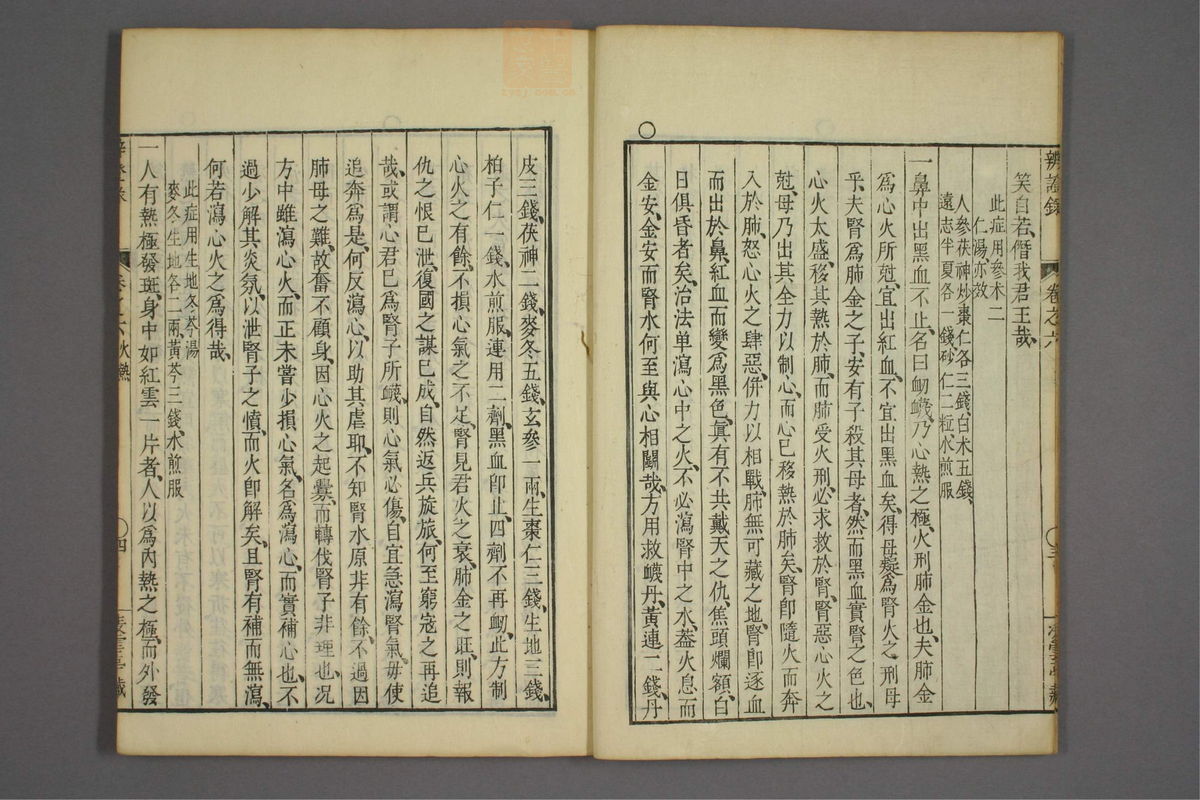 辨證錄
卷之六
笑自若僭我君王哉
此症用參朮二
仁湯亦效
人參茯神炒棗仁各三錢白朮五錢
遠志半夏各一錢砂仁二粒水煎服
一鼻中出黑血不止名曰衂衊乃心熱之極火刑肺金也夫肺金
爲心火所尅宜出紅血不宜出黑血矣得母疑爲腎火之刑母
乎夫腎爲肺金之子安有子殺其母者然而黑血實腎之色也
心火太盛移其熱於肺而肺受火刑必求救於腎腎惡心火之
尅母乃出其全力以制心而心已移熱於肺矣腎卽隨火而奔
入於肺怒心火之肆惡併力以相戰肺無可藏之地腎卽逐血
而出於鼻紅血而變爲黑色眞有不共戴天之仇焦頭爛額白
日俱昏者矣治法单瀉心中之火不必瀉腎中之水葢火息而
金安金安而腎水何至與心相鬭哉方用救衊丹黃連二錢丹
皮三錢茯神二錢麥冬五錢玄參一兩生棗仁三錢生地三錢
柏子仁一錢水煎服連用二劑黑血卽止四劑不再衂此方制
心火之有餘不損心氣之不足腎見君火之衰肺金之旺則報
仇之恨已泄復國之謀已成自然返兵旋旅何至窮寇之再追
哉或謂心君已爲腎子所衊則心氣必傷自宜急瀉腎氣毋使
追奔爲是何反瀉心以助其虐耶不知腎水原非有餘不過因
肺母之難故奮不顧身因心火之起釁而轉伐腎子非理也况
方中雖瀉心火而正未嘗少損心氣名爲瀉心而實補心也不
過少解其炎氛以泄腎子之憤而火卽解矣且腎有補而無瀉
何若瀉心火之爲得哉
此症用生地冬芩湯
麥冬生地各二兩黃芩三錢水煎服
一人有熱極發斑身中如紅雲一片者人以爲內熱之極而外發
卷之六火熱
四